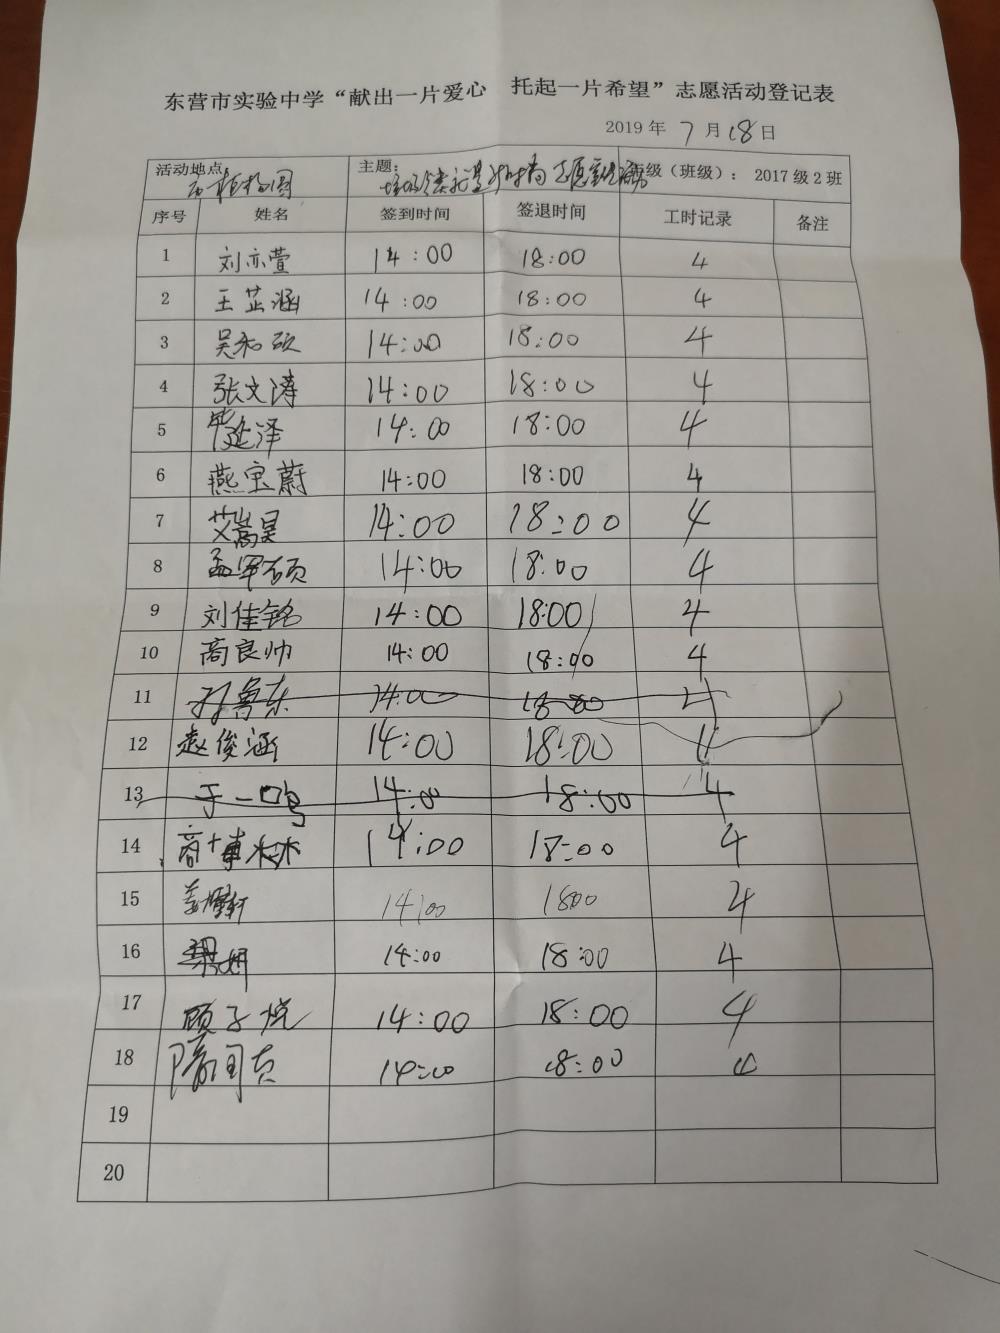 东营市实验中学“献出一片爱心 托起一片希望”志愿活动登记表
2019 年 7 月 18 日
活动地点: 主题: 级(班级): 2017 级 2 班
序号 姓名 签到时间 签退时间 工时记录 备注
1 刘亦萱 14:00 18:00 4
2 王芷涵 14:00 18:00 4
3 吴和硕 14:00 18:00 4
4 张文涛 14:00 18:00 4
5 毕延泽 14:00 18:00 4
6 燕宝蔚 14:00 18:00 4
7 艾嵩昊 14:00 18:00 4
8 孟军硕 14:00 18:00 4
9 刘佳铭 14:00 18:00 4
10 商良帅 14:00 18:00 4
11 孙鲁东 14:00 18:00 4
12 赵俊涵 14:00 18:00 4
13 于一鸣 14:00 18:00 4
14 14:00 18:00 4
15 14:00 18:00 4
16 梁妍 14:00 18:00 4
17 顾子悦 14:00 18:00 4
18 14:00 18:00 4
19
20